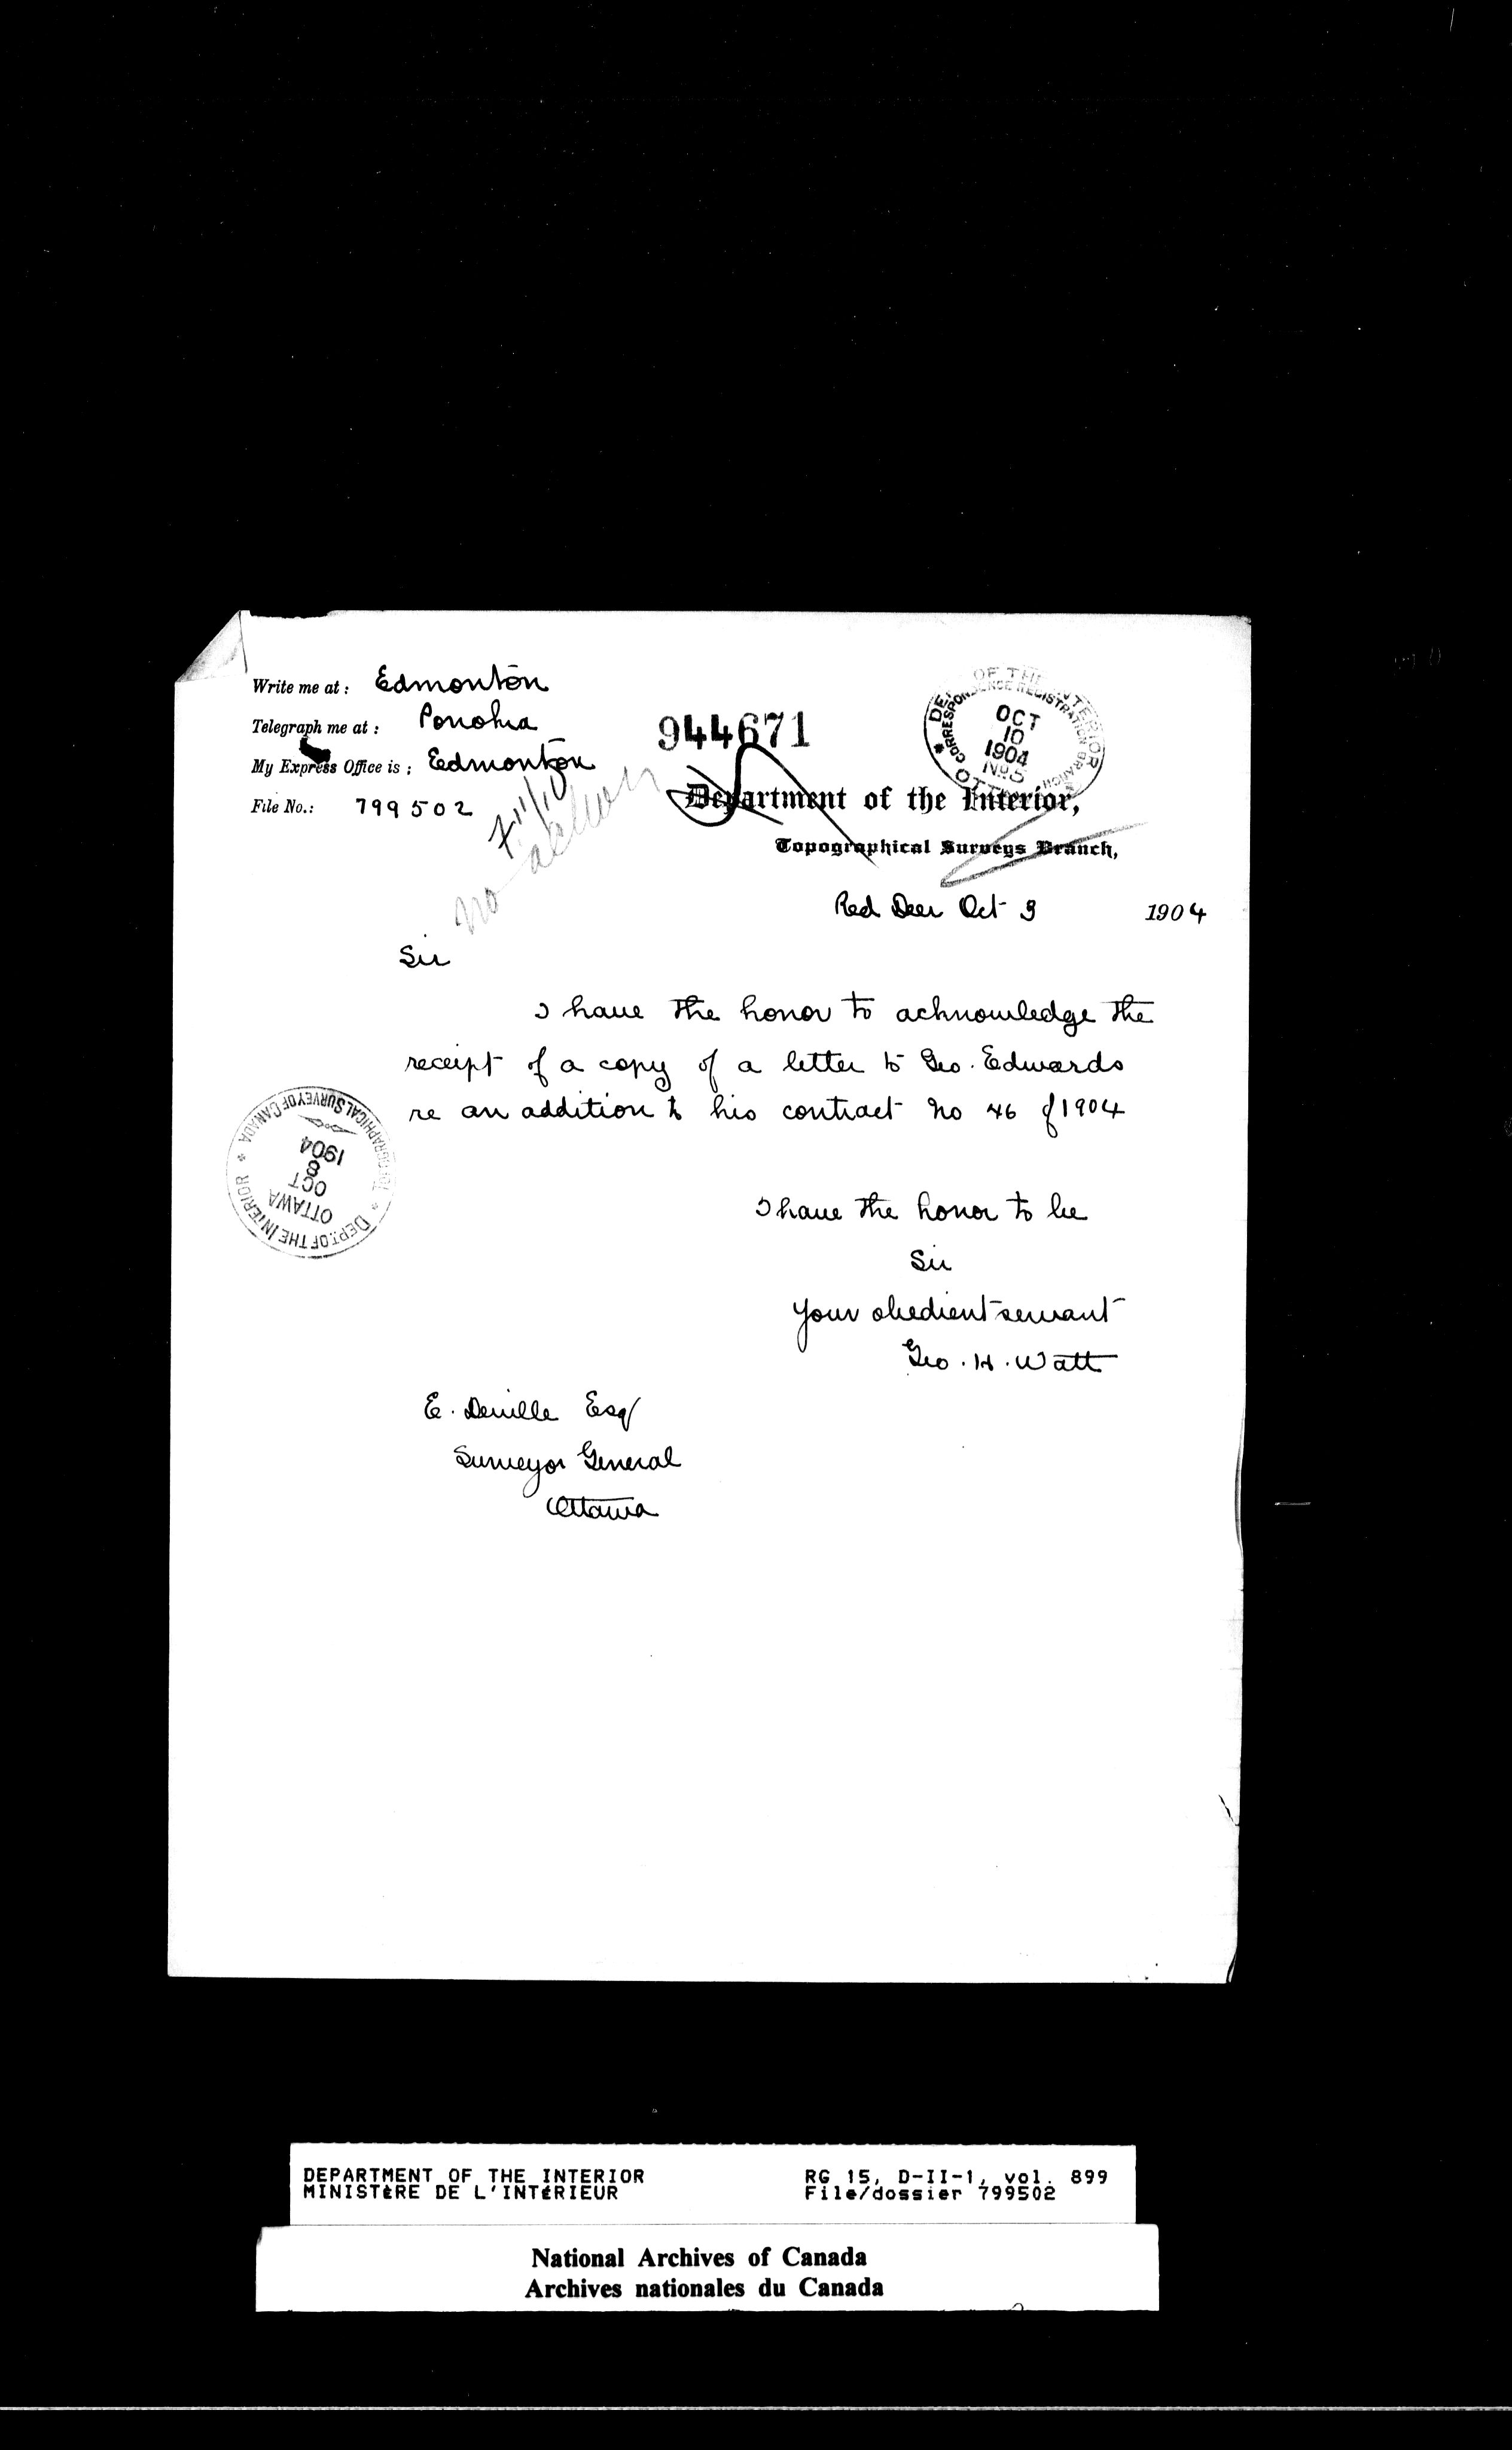 Write me at: Edmonton
Telegraph me at: Ponoka
My Express Office is: Edmonton
File No.: 799502
944671
DEPT OF THE INTERIOR
CORRESPONDENCE REGISTRATION BRANCH
OCT
10
1904
No. 5
OTTAWA
no
Department of the Interior,
Topographical Surveys Branch,
Red Deer Oct 3 1904
Sir
I have the honor to acknowledge the
receipt of a copy of a letter to Geo. Edwards
re an addition to his contract no 46 of 1904
TOPOGRAPHICAL SURVEY OF CANADA
DEPT. OF THE INTERIOR
OTTAWA
OCT
8
1904
I have the honor to be
Sir
Your obedient servant
Geo. H. Watt
E. Deville Esq
Surveyor General
Ottawa
DEPARTMENT OF THE INTERIOR RG 15, D-II-1, vol. 899
MINISTÈRE DE L'INTÉRIEUR File/dossier 799502
National Archives of Canada
Archives nationales du Canada